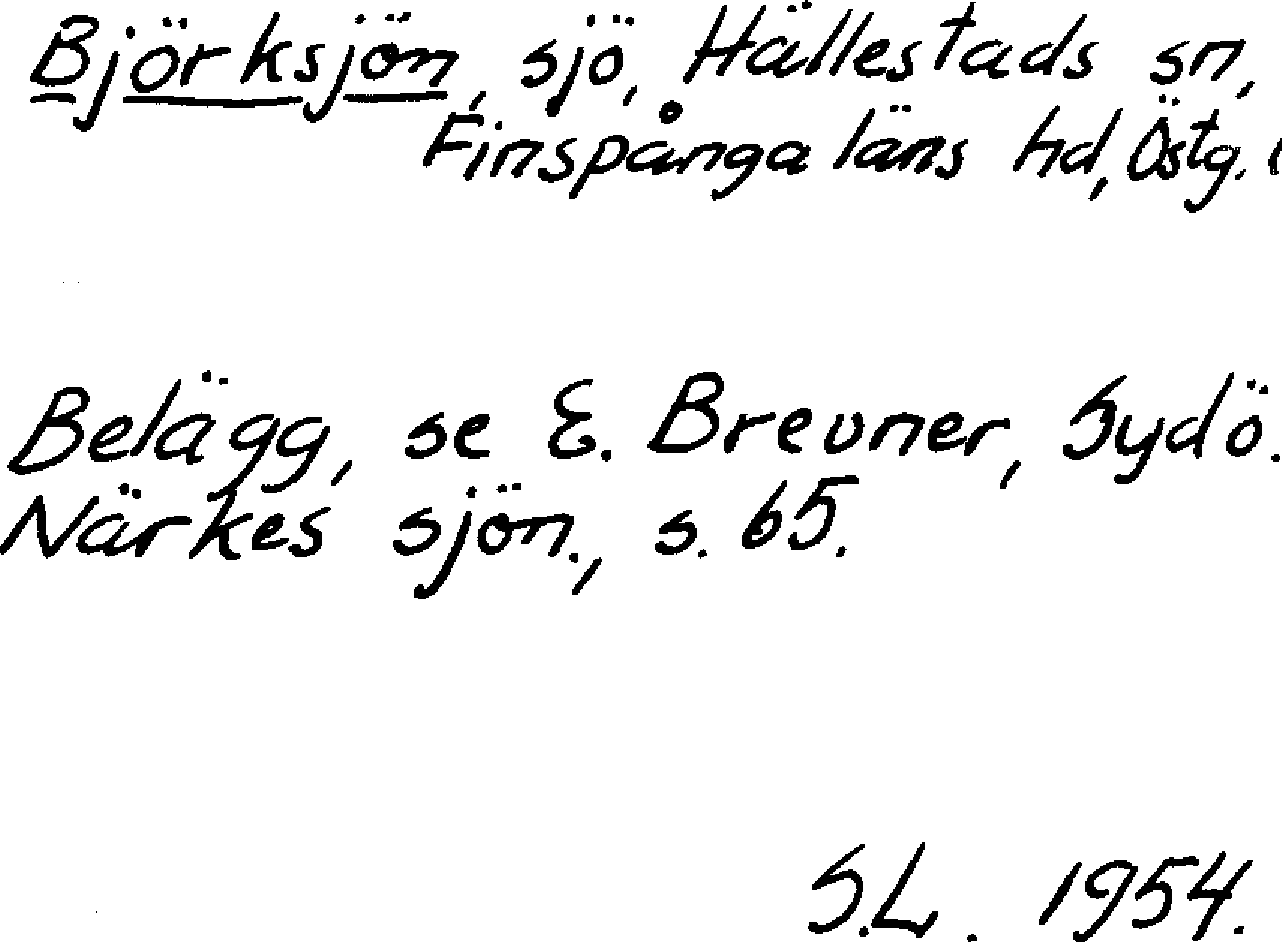 Björksjön, sjö, Hällestads sn,
Finspånga läns hd, Östg. l
Belägg, se E. Brevner, Sydö.
Närkes sjön., s. 65.
S.L. 1954.